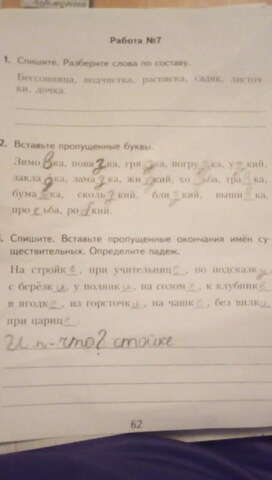 Работа №7
1. Спишите. Разберите слова по составу.
Бессонница, подчистка, растопка, садик, листоч-
ки, дочка.
2. Вставьте пропущенные буквы.
Зимовка, пова з ка, гря з ка, погру з ка, у з кий,
закла д ка, лама ка, жи д кий, хо ьба, тра в ка,
бума ж ка, сколь з кий, бли з кий, выши в ка,
про с ьба, ро б кий.
Спишите. Вставьте пропущенные окончания имён су-
ществительных. Определите падеж.
На стройк е, при учительниц е, по подсказк
с берёзк и, у полянк и, на солом е, к клубник е
в ягодк е, из горсточк и, на чашк е, без вилк и
при цариц е
И п - что? стойке
62